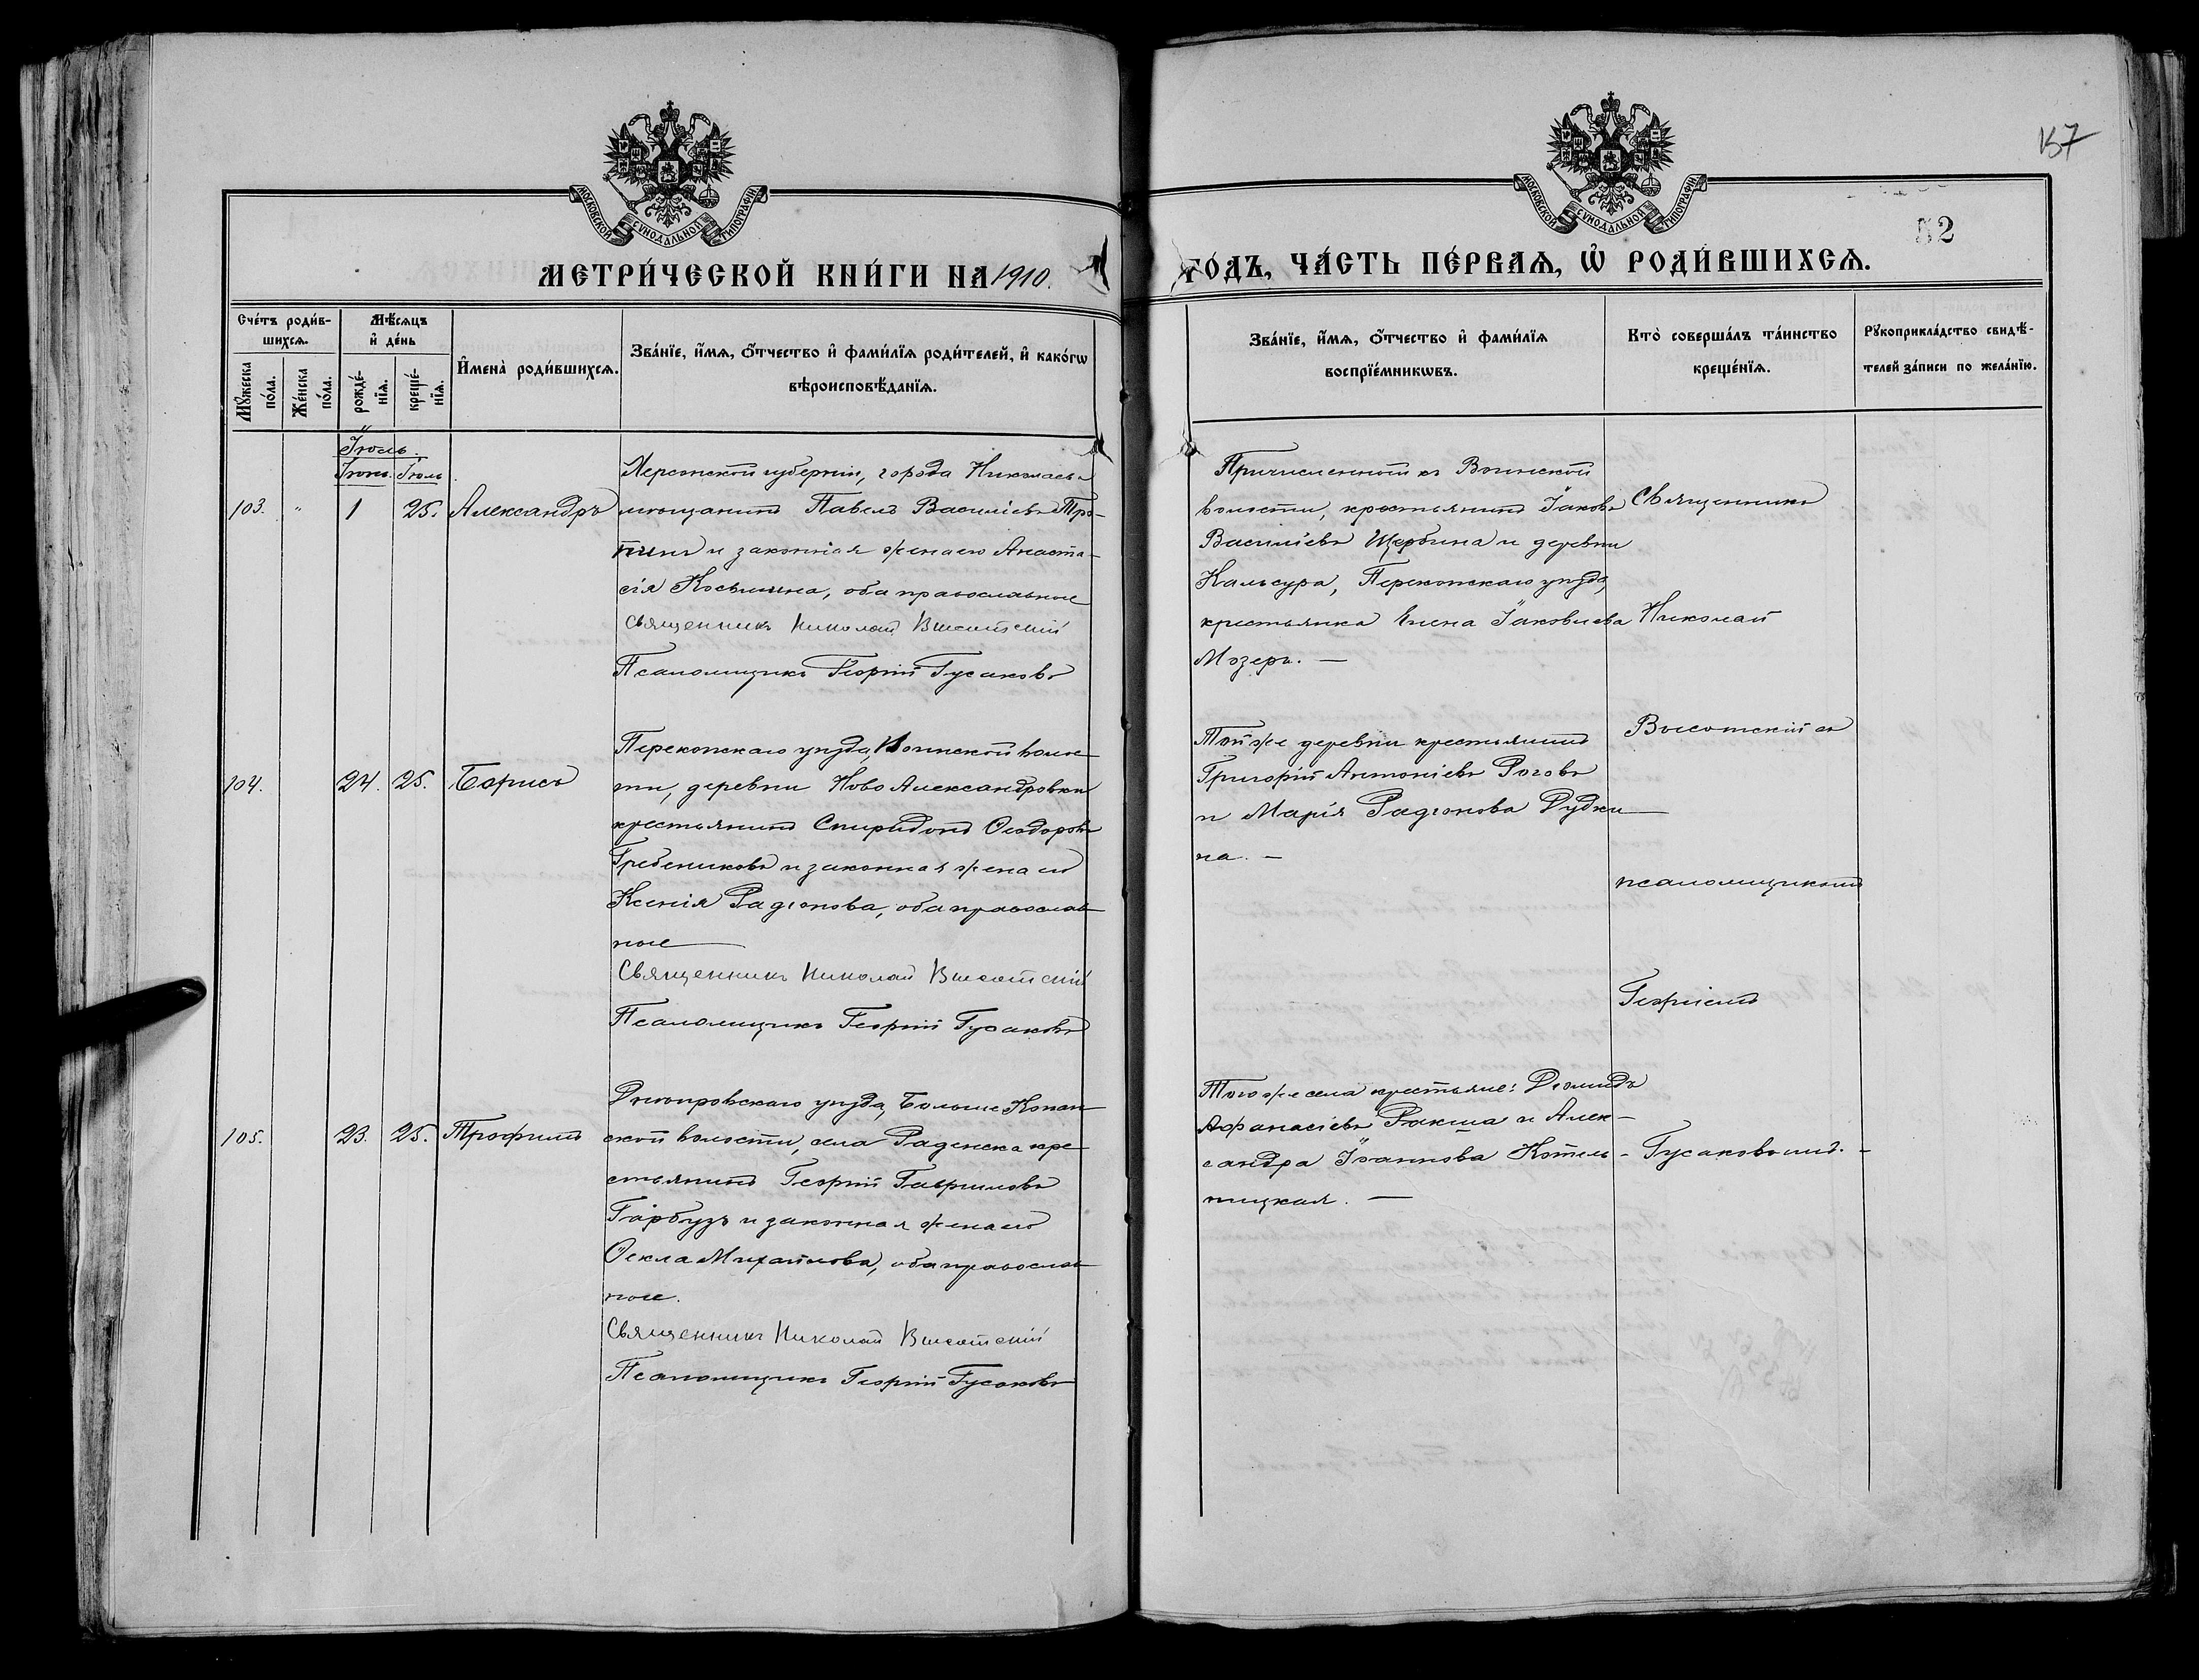 157
52
МОСКОВСКОЙ СѴНОДАЛЬНОЙ ТИПОГРАФІИ
МОСКОВСКОЙ СѴНОДАЛЬНОЙ ТИПОГРАФІИ
МЕТРИ́ЧЕСКОЙ КНИ́ГИ НА 1910.
ГО́ДЪ, ЧА́СТЬ ПЕ́РВАѦ, Ѽ РОДИ́ВШИХСѦ.
Сче́тъ роди́в-
шихсѧ.
Мꙋ́жеска
по́ла.
Же́нска
по́ла.
Мѣ́сѧцъ
и҆ де́нь
рожде́-
нїѧ.
креще́-
нїѧ.
И҆мена̀ роди́вшихсѧ.
Зва́нїе, и҆́мѧ, ѻ҆́тчество и҆ фами́лїѧ роди́телей, и҆ како́гѡ
вѣроисповѣ́данїѧ.
Зва́нїе, и҆́мѧ, ѻ҆́тчество и҆ фами́лїѧ
воспрїе́мникѡвъ.
Кто̀ соверша́лъ та́инство
креще́нїѧ.
Рꙋкоприкла́дство свидѣ́-
телей за́писи по жела́нїю.
Іюль.
Іюнь. Іюль.
103. " 1 25. Александръ
Херсонской губерніи, города Николаева
мѣщанинъ Павелъ Василіевъ Тро-
пинъ и законная жена его Анаста-
сія Косьмина, оба православные
Священникъ Николай Высотскій
Псаломщикъ Георгій Гусаковъ
Причисленной къ Воинской
волости, крестьянинъ Іаковъ
Василіевъ Щербина и деревни
Кальсура, Перекопскаго уѣзда,
крестьянка Елена Іаковлева
Мозеръ. —
104. 24. 25. Борисъ
Перекопскаго уѣзда, Воинской волос-
ти, деревни Ново Александровки
крестьянинъ Спиридонъ Ѳеодоровъ
Гребениковъ и законная жена его
Ксенія Радіонова, оба православ-
ные
Священникъ Николай Высотскій
Псаломщикъ Георгій Гусаковъ
Той же деревни крестьянинъ
Григорій Антоніевъ Роговъ
и Марія Радіонова Рудки-
на. —
105. 23. 25. Трофимъ
Днѣпровскаго уѣзда, Больше Копан-
ской волости, села Раденска кре-
стьянинъ Георгій Гавриловъ
Гарбузъ и законная жена его
Ѳекла Михайлова, оба православ-
ные.
Священникъ Николай Высотскій
Псаломщикъ Георгій Гусаковъ
Того же села крестьяне: Діомидъ
Аѳанасіевъ Ракша и Алек-
сандра Іоаннова Котель-
ницкая. —
Священникъ
Николай
Высотскій съ
псаломщикомъ
Георгіемъ
Гусаковымъ. -